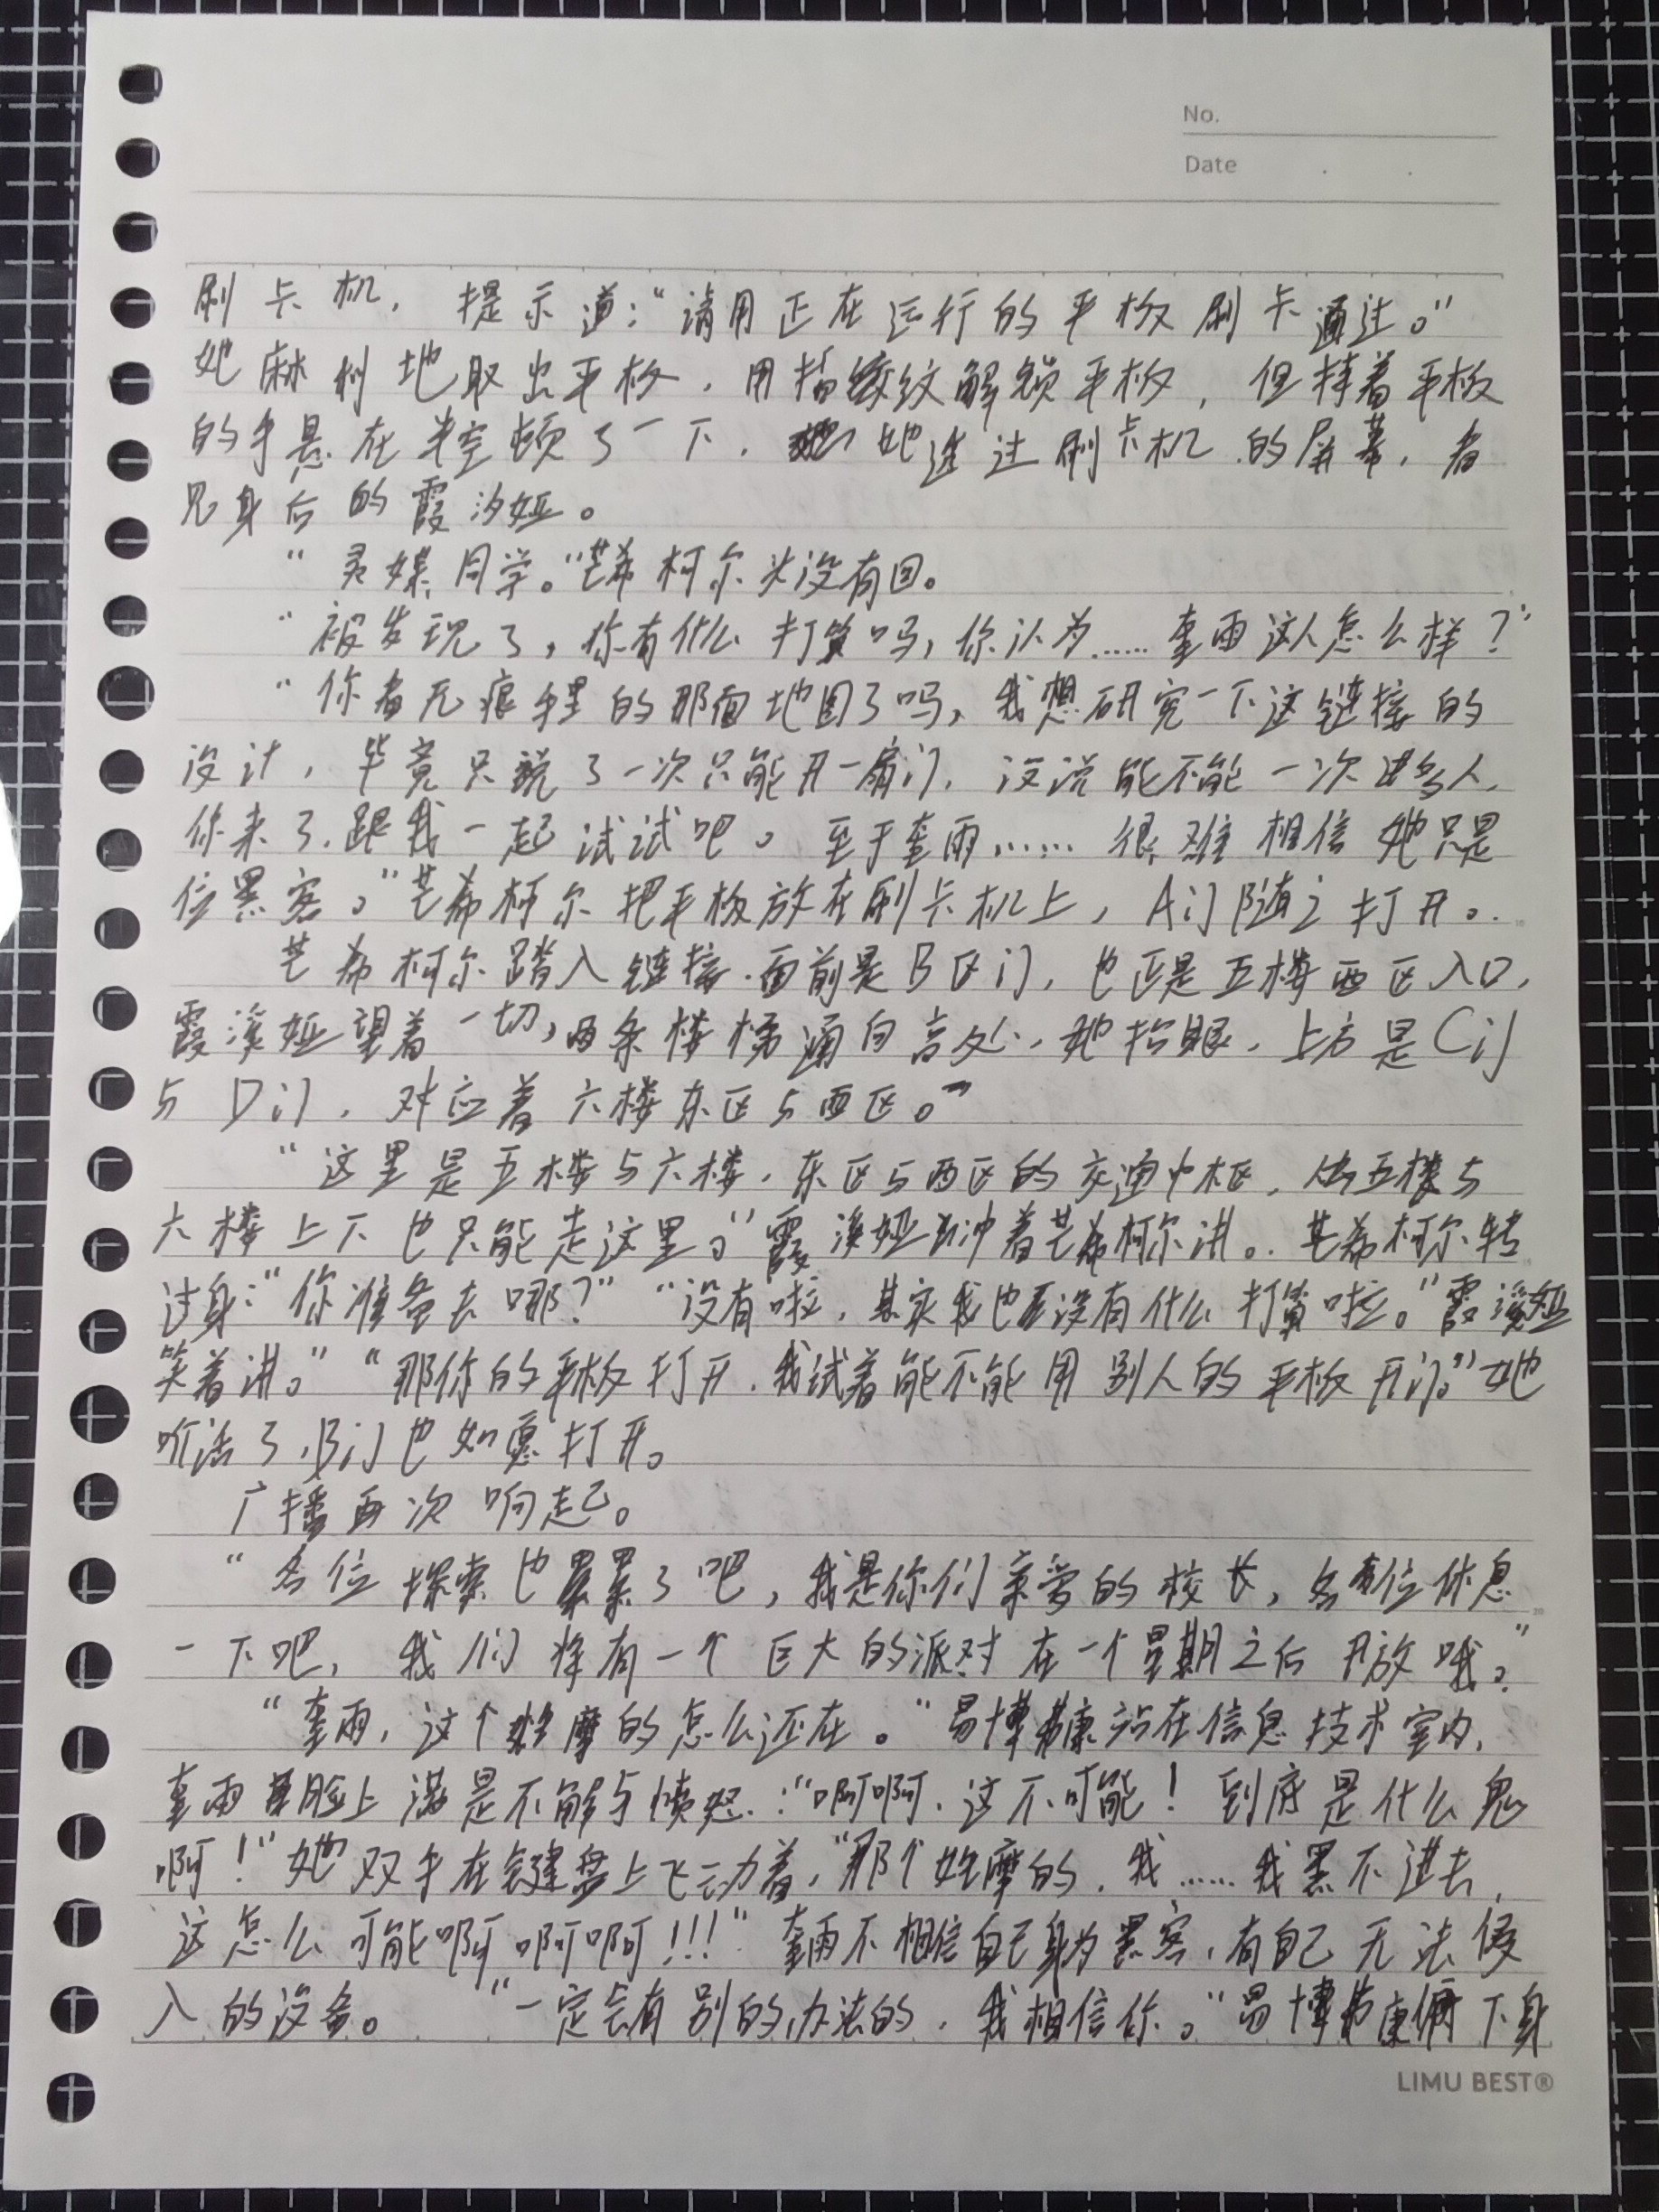 No.
Date
刷卡机，提示道：“请用正在运行的平板刷卡通过。”
她麻利地取出平板，用指纹解锁平板，但持着平板
的手悬在半空顿了一下，她透过刷卡机的屏幕，看
见身后的霞汐娅。
“灵媒同学。”芒希柯尔头没有回。
“被发现了，你有什么打算吗，你认为……奎雨这人怎么样？”
“你看无痕手里的那面地图了吗，我想研究一下这链接的
设计，毕竟只说了一次只能开一扇门，没说能不能一次进多人，
你来了，跟我一起试试吧。至于奎雨……很难相信她只是
位黑客。”芒希柯尔把平板放在刷卡机上，A门随之打开。
芒希柯尔踏入链接，面前是B区门，也正是五楼西区入口，
霞溪娅望着一切，两条楼梯通向高处，她抬眼，上方是C门
与D门，对应着六楼东区与西区。”
“这里是五楼与六楼，东区与西区的交通中枢，从五楼与
六楼上下也只能走这里。”霞溪娅冲着芒希柯尔讲。芒希柯尔转
过身：“你准备去哪？”“没有啦，其实我也没有什么打算啦。”霞溪娅
笑着讲。”“那你的平板打开，我试着能不能用别人的平板开门。”她
听话了，B门也如愿打开。
广播再次响起。
“各位探索也累了吧，我是你们亲爱的校长，各位休息
一下吧，我们将有一个巨大的派对在一个星期之后开放哦。”
“奎雨，这个姓摩的怎么还在。”易博弗康站在信息技术室内，
奎雨脸上满是不解与愤怒：“啊啊，这不可能！到底是什么鬼
啊！”她双手在键盘上飞动着，“那个姓摩的，我……我黑不进去，
这怎么可能啊啊啊！！！”奎雨不相信自己身为黑客，有自己无法侵
入的设备。 “一定会有别的办法的，我相信你。”易博弗康俯下身
LIMU BEST®